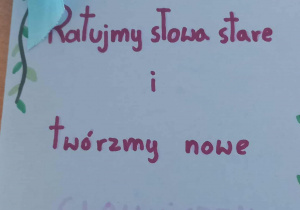 Ratujmy słowa stare
i
twórzmy nowe